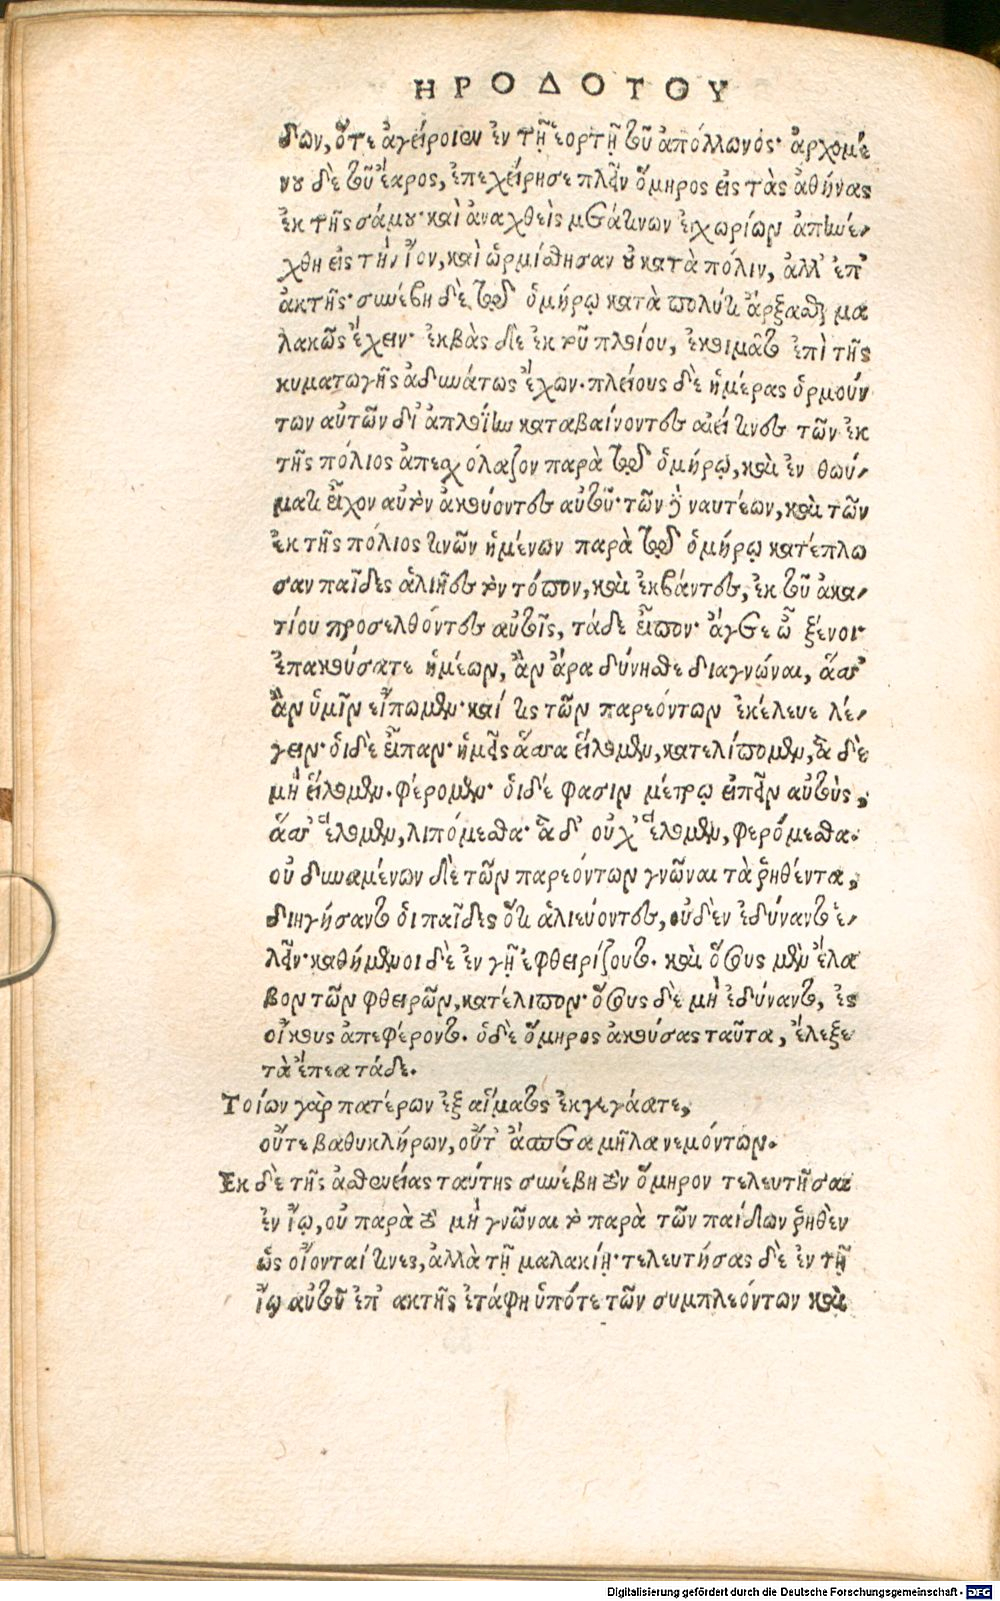 ΗΡΟΔΟΤΟΥ
δων, ὅτε ἀγείροιεν ἐν τῇ ἑορτῇ τοῦ ἀπόλλωνός· ἀρχομέ
νου δὲ τοῦ ἔαρος, ἐπεχείρησε πλεῖν ὅμηρος εἰς τὰς ἀθήνας
ἐκ τῆς σάμου· καὶ ἀναχθεὶς μετά τινων ἐγχωρίων ἀπηνέ-
χθη εἰς τὴν ἴον, καὶ ὡρμίσθησαν οὐ κατὰ πόλιν, ἀλλ' ἐπ'
ἀκτῆς· συνέβη δὲ τῷ ὁμήρῳ κατὰ πολύ τι ἄρξασθαι μα
λακῶς ἔχειν· ἐκβὰς δὲ ἐκ τοῦ πλοίου, ἐκοιμᾶτο ἐπὶ τῆς
κυματωγῆς ἀδυνάτως ἔχων· πλείους δὲ ἡμέρας ὁρμούν
των αὐτῶν δι' ἀπλοΐην καταβαίνοντες αἰεί τινες τῶν ἐκ
τῆς πόλιος ἀπεσχόλαζον παρὰ τῷ ὁμήρῳ, καὶ ἐν θωύ-
ματι εἶχον αὐτὸν ἀκούοντες αὐτοῦ· τῶν δὲ ναυτέων, καὶ τῶν
ἐκ τῆς πόλιος τινῶν ἡμένων παρὰ τῷ ὁμήρῳ κατέπλω
σαν παῖδες ἁλιῆες τὸν τόπον, καὶ ἐκβάντες, ἐκ τοῦ ἀκα-
τίου προσελθόντες αὐτοῖς, τάδε εἶπον· ἄγετε ὦ ξένοι·
ἐπακούσατε ἡμέων, ἂν ἄρα δύνησθε διαγνῶναι, ἅσσ'
ἂν ὑμῖν εἴπωμεν· καί τις τῶν παρεόντων ἐκέλευε λέ-
γειν· ὁιδὲ εἶπαν· ἡμεῖς ἅσσα εἵλομεν, κατελίπομεν, ἃ δὲ
μὴ εἵλομεν· φέρομεν· ὁιδέ φασιν μέτρῳ εἰπεῖν αὐτοὺς,
ἅσσ' ἕλομεν, λιπόμεσθα· ἃ δ' οὐχ' ἕλομεν, φερόμεσθα.
οὐ δυναμένων δὲ τῶν παρεόντων γνῶναι τὰ ῥηθέντα,
διηγήσαντο ὁι παῖδες ὅτι ἁλιεύοντες, οὐδὲν ἐδύναντο ἑ-
λεῖν· καθήμενοι δὲ ἐν γῇ ἐφθειρίζοντο. καὶ ὅσους μὲν ἔλα
βον τῶν φθειρῶν, κατέλιπον· ὅσους δὲ μὴ ἐδύναντο, ἐς
οἴκους ἀπεφέροντο. ὁδὲ ὅμηρος ἀκούσας ταῦτα, ἔλεξε
τὰ ἔπεα τάδε.
Τοίων γὰρ πατέρων ἐξ αἵματος ἐκγεγάατε,
οὔτε βαθυκλήρων, οὔτ' ἄσπετα μῆλα νεμόντων.
Ἐκ δὲ τῆς ἀσθενείας ταύτης συνέβη τὸν ὅμηρον τελευτῆσαι
ἐν ἴῳ, οὐ παρὰ τὸ μὴ γνῶναι τὸ παρὰ τῶν παίδων ῥηθὲν
ὡς οἴονταί τινες, ἀλλὰ τῇ μαλακίῃ· τελευτήσας δὲ ἐν τῇ
ἴῳ αὐτοῦ ἐπ' ἀκτῆς ἐτάφη ὑπότε τῶν συμπλεόντων καὶ
Digitalisierung gefördert durch die Deutsche Forschungsgemeinschaft - DFG